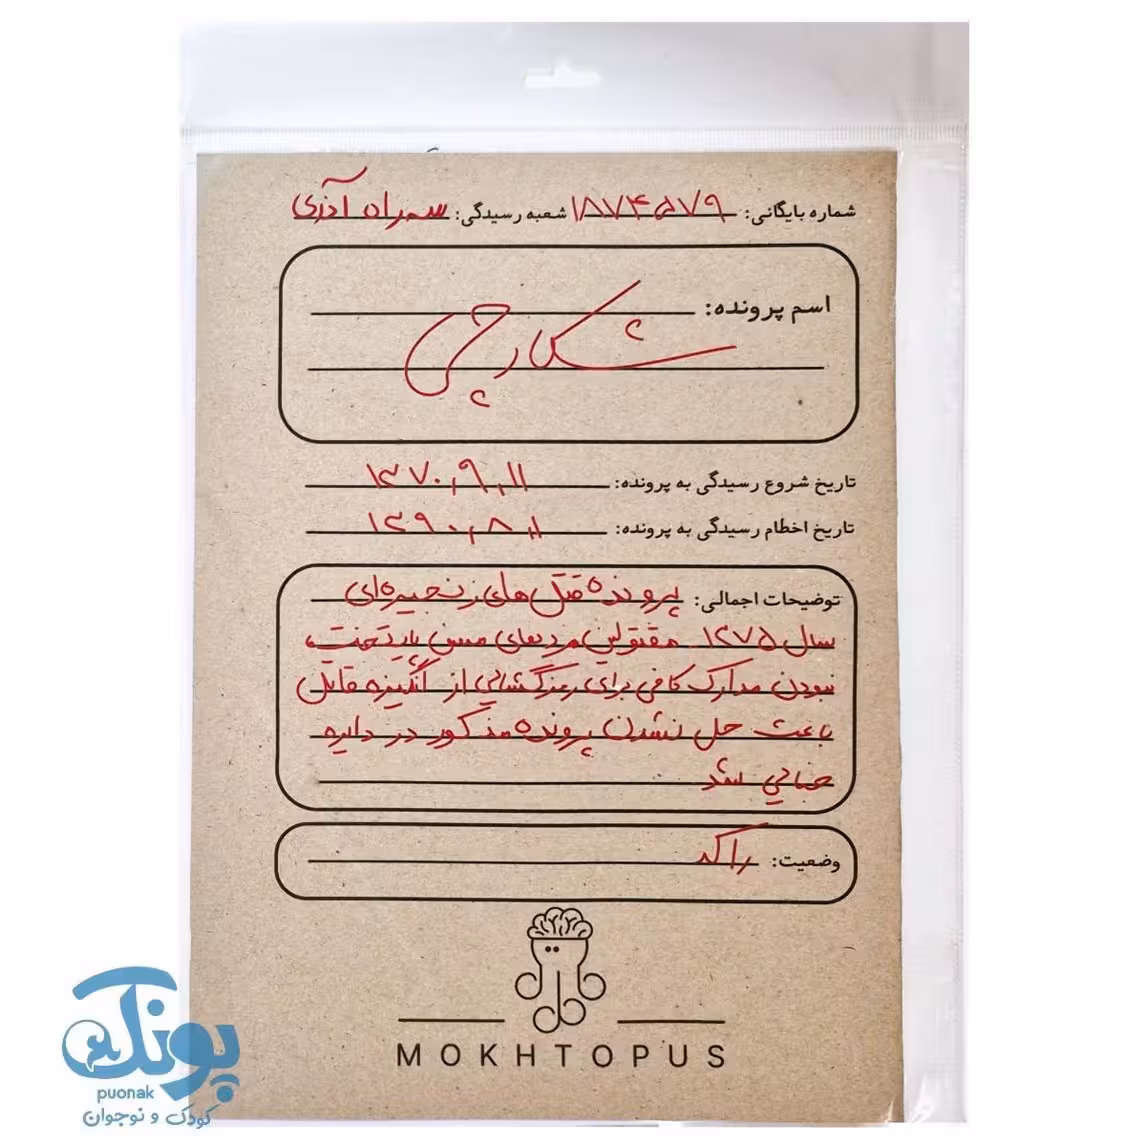 شماره بایگانی: ۱۸۷۴۵۷۹ شعبه رسیدگی: سه‌راه آذری
اسم پرونده:
شکارچی
تاریخ شروع رسیدگی به پرونده: ۱۳۷۰,۹,۱۱
تاریخ اخطام رسیدگی به پرونده: ۱۳۹۰,۸,۱
توضیحات اجمالی: پرونده قتل های زنجیره‌ای
سال ۱۳۷۵ مقتولین مردهای مسن پایتخت،
نبودن مدارک کافی برای رمزگشائی از انگیزه قاتل
باعث حل نشدن پرونده مذکور در دایره
جنائی شد
وضعیت: راکد
MOKHTOPUS
پونک
puonak
کودک و نوجوان